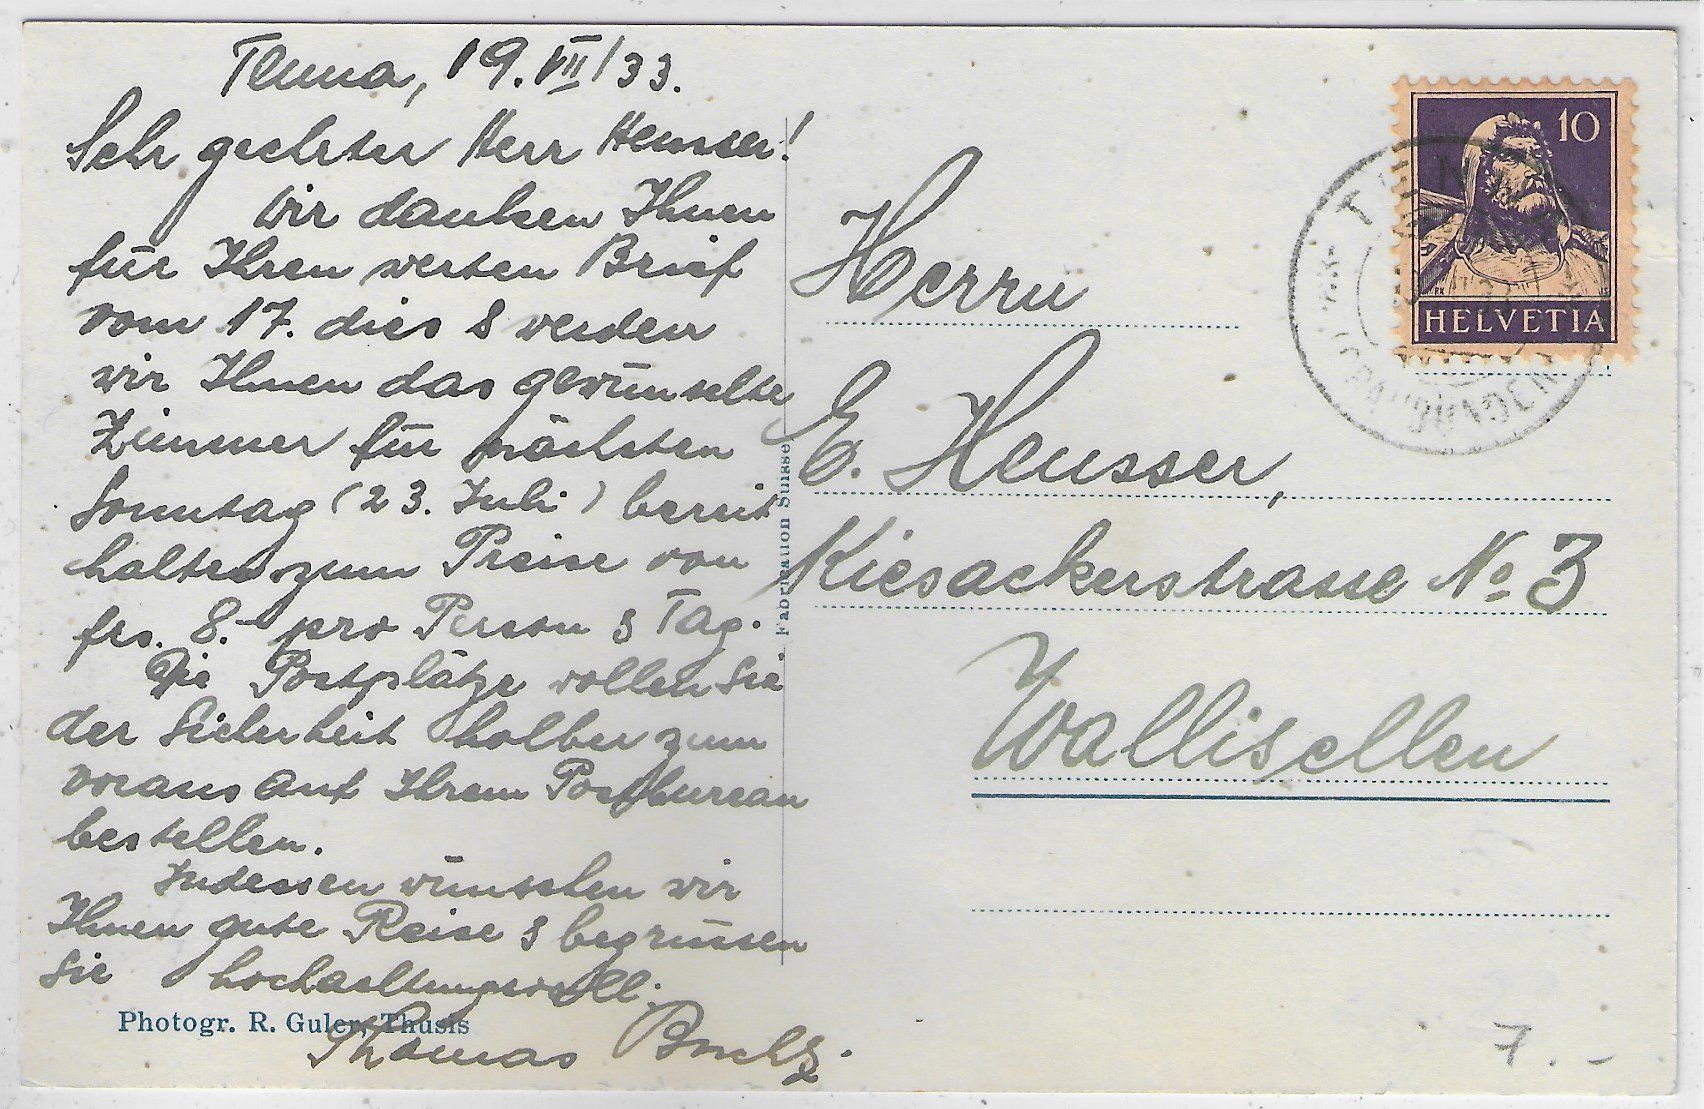 Tenna, 19. VII/33.
Sehr geehrter Herr Heusser!
Wir danken Ihnen
für Ihren werten Brief
vom 17. dies & werden
wir Ihnen das gewünschte
Zimmer für nächsten
Sonntag (23. Juli) bereit
halten zum Preise von
frs. 8.- pro Person & Tag.
Die Postplätze wollen Sie
der Sicherheit halber zum
voraus auf Ihrem Postbureau
bestellen.
Indessen wünschen wir
Ihnen gute Reise & begrüssen
Sie hochachtungsvoll.
Thomas
Photogr. R. Guler, Thusis
Fabrication Suisse
10
HELVETIA
Herrn
E. Heusser,
Kiesackerstrasse No 3
Wallisellen
7.-